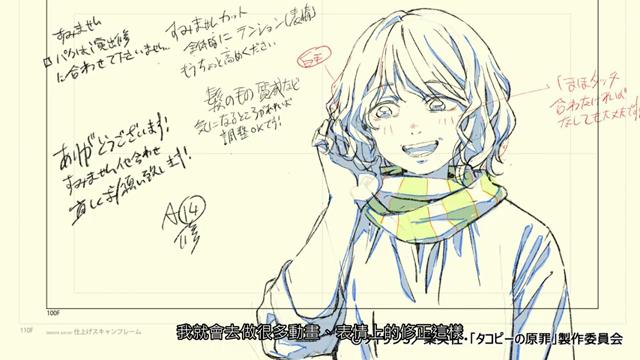 すみません
口パクは演出修
に合わせて下さいません
すみませんカット
全体的にテンション(表情)
もうちょっと高めください
髪のもの 質感など
気になるところがあれば
調整OKです!
ありがとうございます!
すみません他合わせ
宜しくお願い致します!
A⑭
修
合わなければ
なしでも大丈夫です
100F
110F
仕上げスキャンフレーム
我就會去做很多動畫、表情上的修正這樣
集英社・「タコピーの原罪」製作委員会